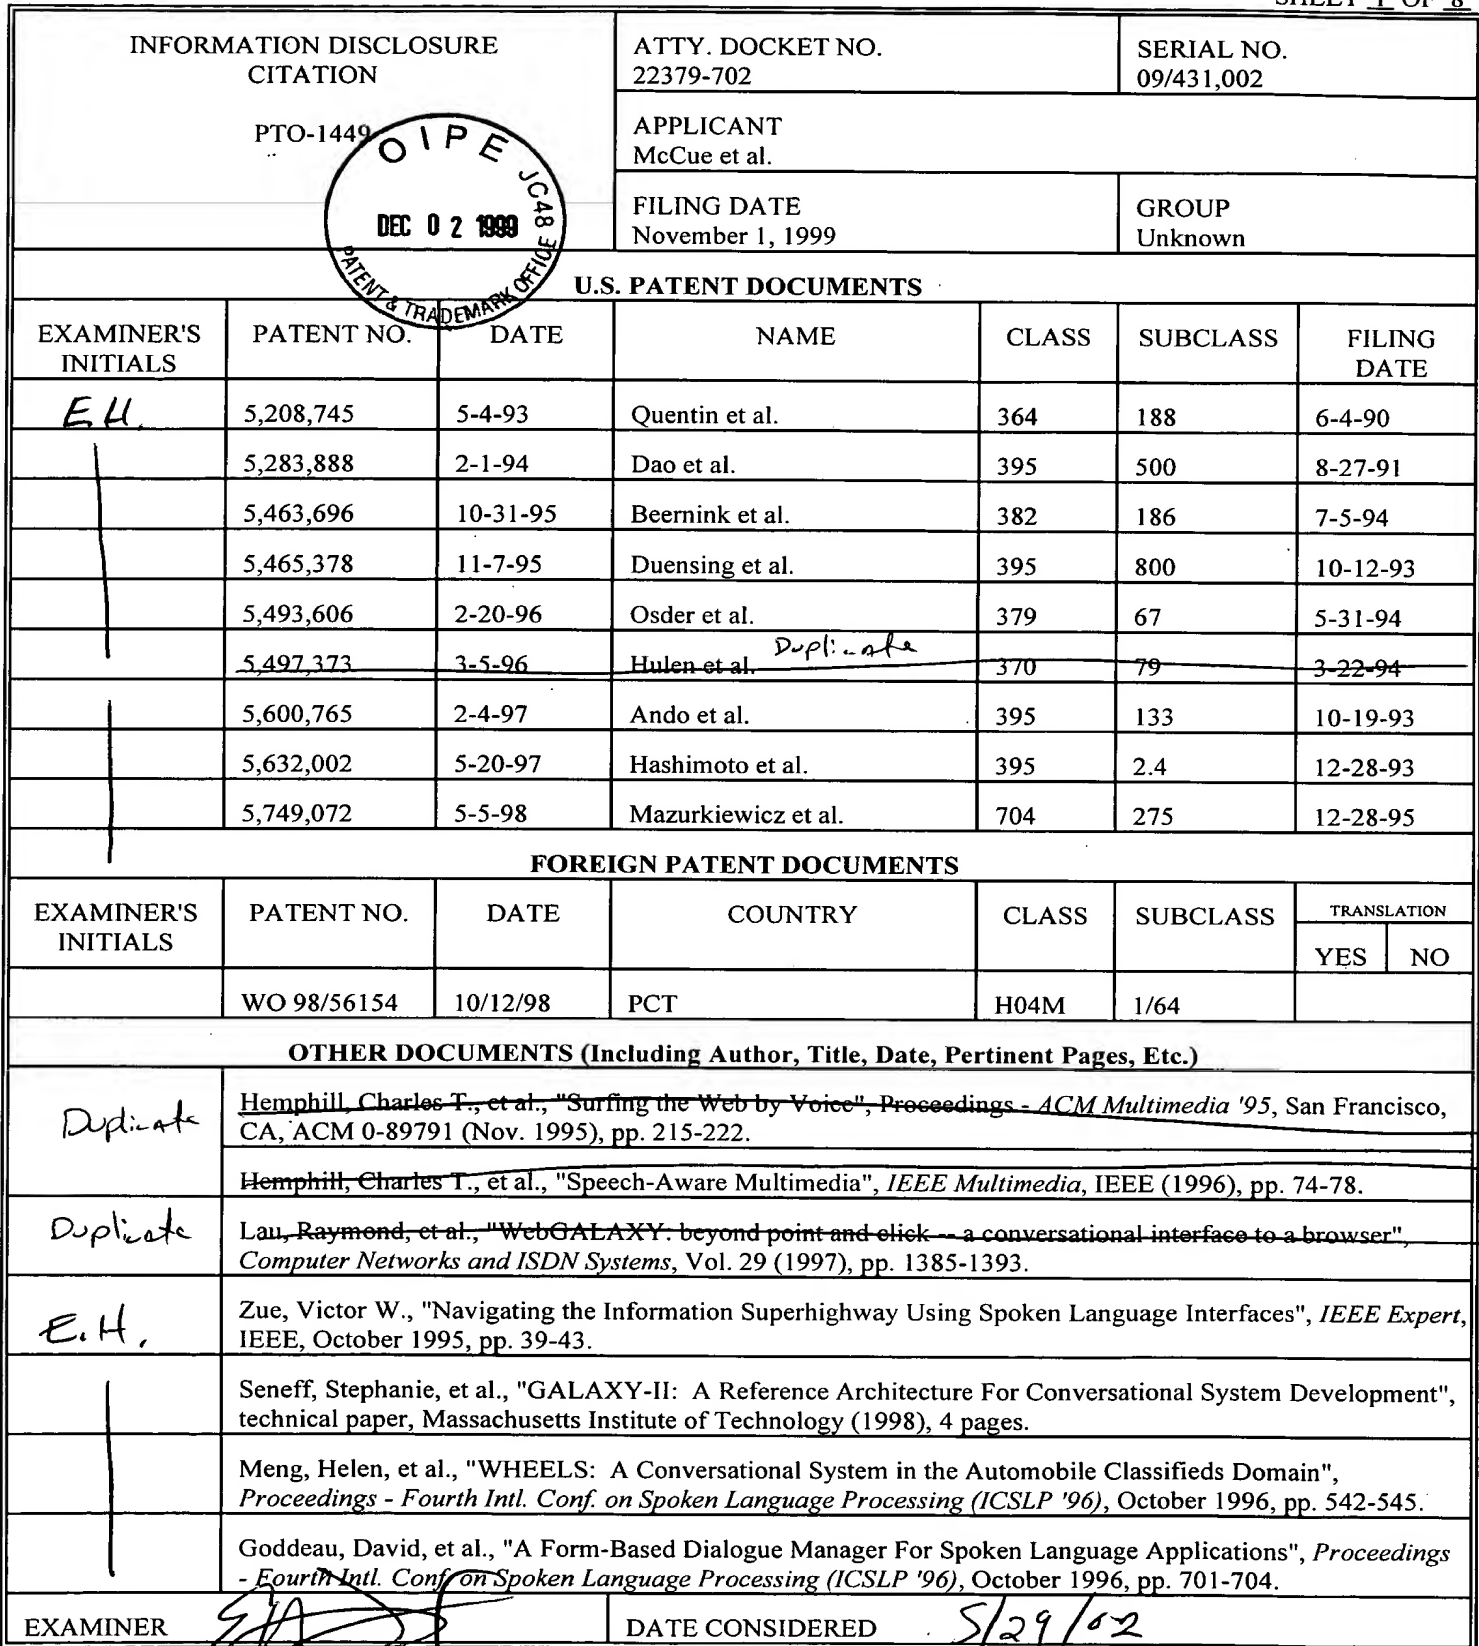 SHEET 1 OF 8
INFORMATION DISCLOSURE
CITATION
PTO-1449
OIPE JC48
DEC 02 1999
PATENT & TRADEMARK OFFICE
ATTY. DOCKET NO.
22379-702
SERIAL NO.
09/431,002
APPLICANT
McCue et al.
FILING DATE
November 1, 1999
GROUP
Unknown
U.S. PATENT DOCUMENTS
EXAMINER'S INITIALS PATENT NO. DATE NAME CLASS SUBCLASS FILING DATE
E.H. 5,208,745 5-4-93 Quentin et al. 364 188 6-4-90
5,283,888 2-1-94 Dao et al. 395 500 8-27-91
5,463,696 10-31-95 Beernink et al. 382 186 7-5-94
5,465,378 11-7-95 Duensing et al. 395 800 10-12-93
5,493,606 2-20-96 Osder et al. 379 67 5-31-94
5,497,373 3-5-96 Hulen et al. Duplicate 370 79 3-22-94
5,600,765 2-4-97 Ando et al. 395 133 10-19-93
5,632,002 5-20-97 Hashimoto et al. 395 2.4 12-28-93
5,749,072 5-5-98 Mazurkiewicz et al. 704 275 12-28-95
FOREIGN PATENT DOCUMENTS
EXAMINER'S INITIALS PATENT NO. DATE COUNTRY CLASS SUBCLASS TRANSLATION
YES NO
WO 98/56154 10/12/98 PCT H04M 1/64
OTHER DOCUMENTS (Including Author, Title, Date, Pertinent Pages, Etc.)
Duplicate
Hemphill, Charles T., et al., "Surfing the Web by Voice", Proceedings - ACM Multimedia '95, San Francisco,
CA, ACM 0-89791 (Nov. 1995), pp. 215-222.
Hemphill, Charles T., et al., "Speech-Aware Multimedia", IEEE Multimedia, IEEE (1996), pp. 74-78.
Duplicate
Lau, Raymond, et al., "WebGALAXY: beyond point and click -- a conversational interface to a browser",
Computer Networks and ISDN Systems, Vol. 29 (1997), pp. 1385-1393.
E.H.
Zue, Victor W., "Navigating the Information Superhighway Using Spoken Language Interfaces", IEEE Expert,
IEEE, October 1995, pp. 39-43.
Seneff, Stephanie, et al., "GALAXY-II: A Reference Architecture For Conversational System Development",
technical paper, Massachusetts Institute of Technology (1998), 4 pages.
Meng, Helen, et al., "WHEELS: A Conversational System in the Automobile Classifieds Domain",
Proceedings - Fourth Intl. Conf. on Spoken Language Processing (ICSLP '96), October 1996, pp. 542-545.
Goddeau, David, et al., "A Form-Based Dialogue Manager For Spoken Language Applications", Proceedings
- Fourth Intl. Conf. on Spoken Language Processing (ICSLP '96), October 1996, pp. 701-704.
EXAMINER
DATE CONSIDERED 5/29/02